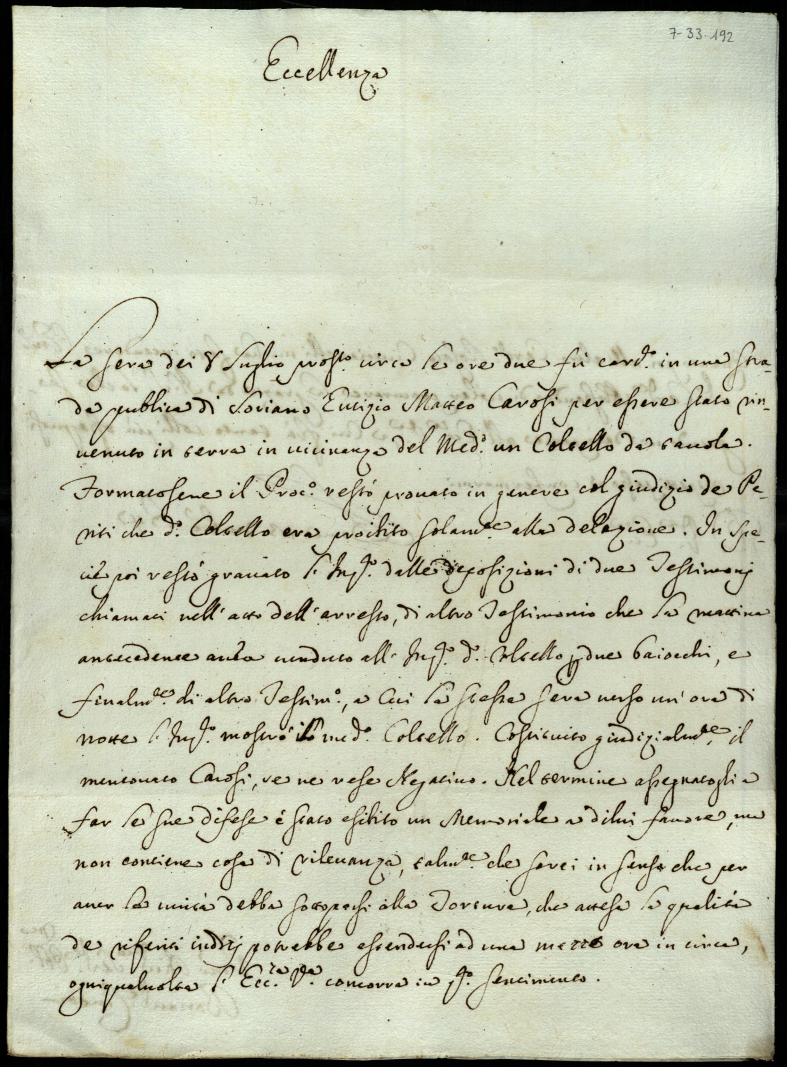 7-33-192
Eccellenza
La sera dei 8 Luglio pross.o circa le ore due fù card.o in una stra-
da publica di Soriano Eutizio Matteo Carosi per essere stato rin-
venuto in terra in vicinanza del Med.o un Coltello da tavola.
Formatosene il Proc.o restò provato in genere col giudizio de Pe-
riti che d.o Coltello era proibito solam.te alla delazione. In spe-
cie poi restò gravato l'Inq.o dalle deposizioni di due Testimonj
chiamati nell'atto dell'arresto, di altro Testimonio che la mattina
antecedente avea venduto all'Inq.o d.o Coltello p due baiocchi, e
finalm.te di altro Testim.o, a cui la stessa sera verso un'ora di
notte l'Inq.o mostrò il med.o Coltello. Costituito giudizialm.te il
mentovato Carosi, se ne rese Negativo. Nel termine assegnatogli a
far le sue difese è stato esibito un Memoriale a di lui favore, ma
non contiene cosa di rilevanza, talm.te che sarei in senso che per
aver la verità debba sottoporsi alla Tortura, che attesa la qualità
de riferiti indizj potrebbe estendersi ad una mezza ora in circa,
ogniqualvolta l'Ecc.za V.ra concorra in q.o sentimento.